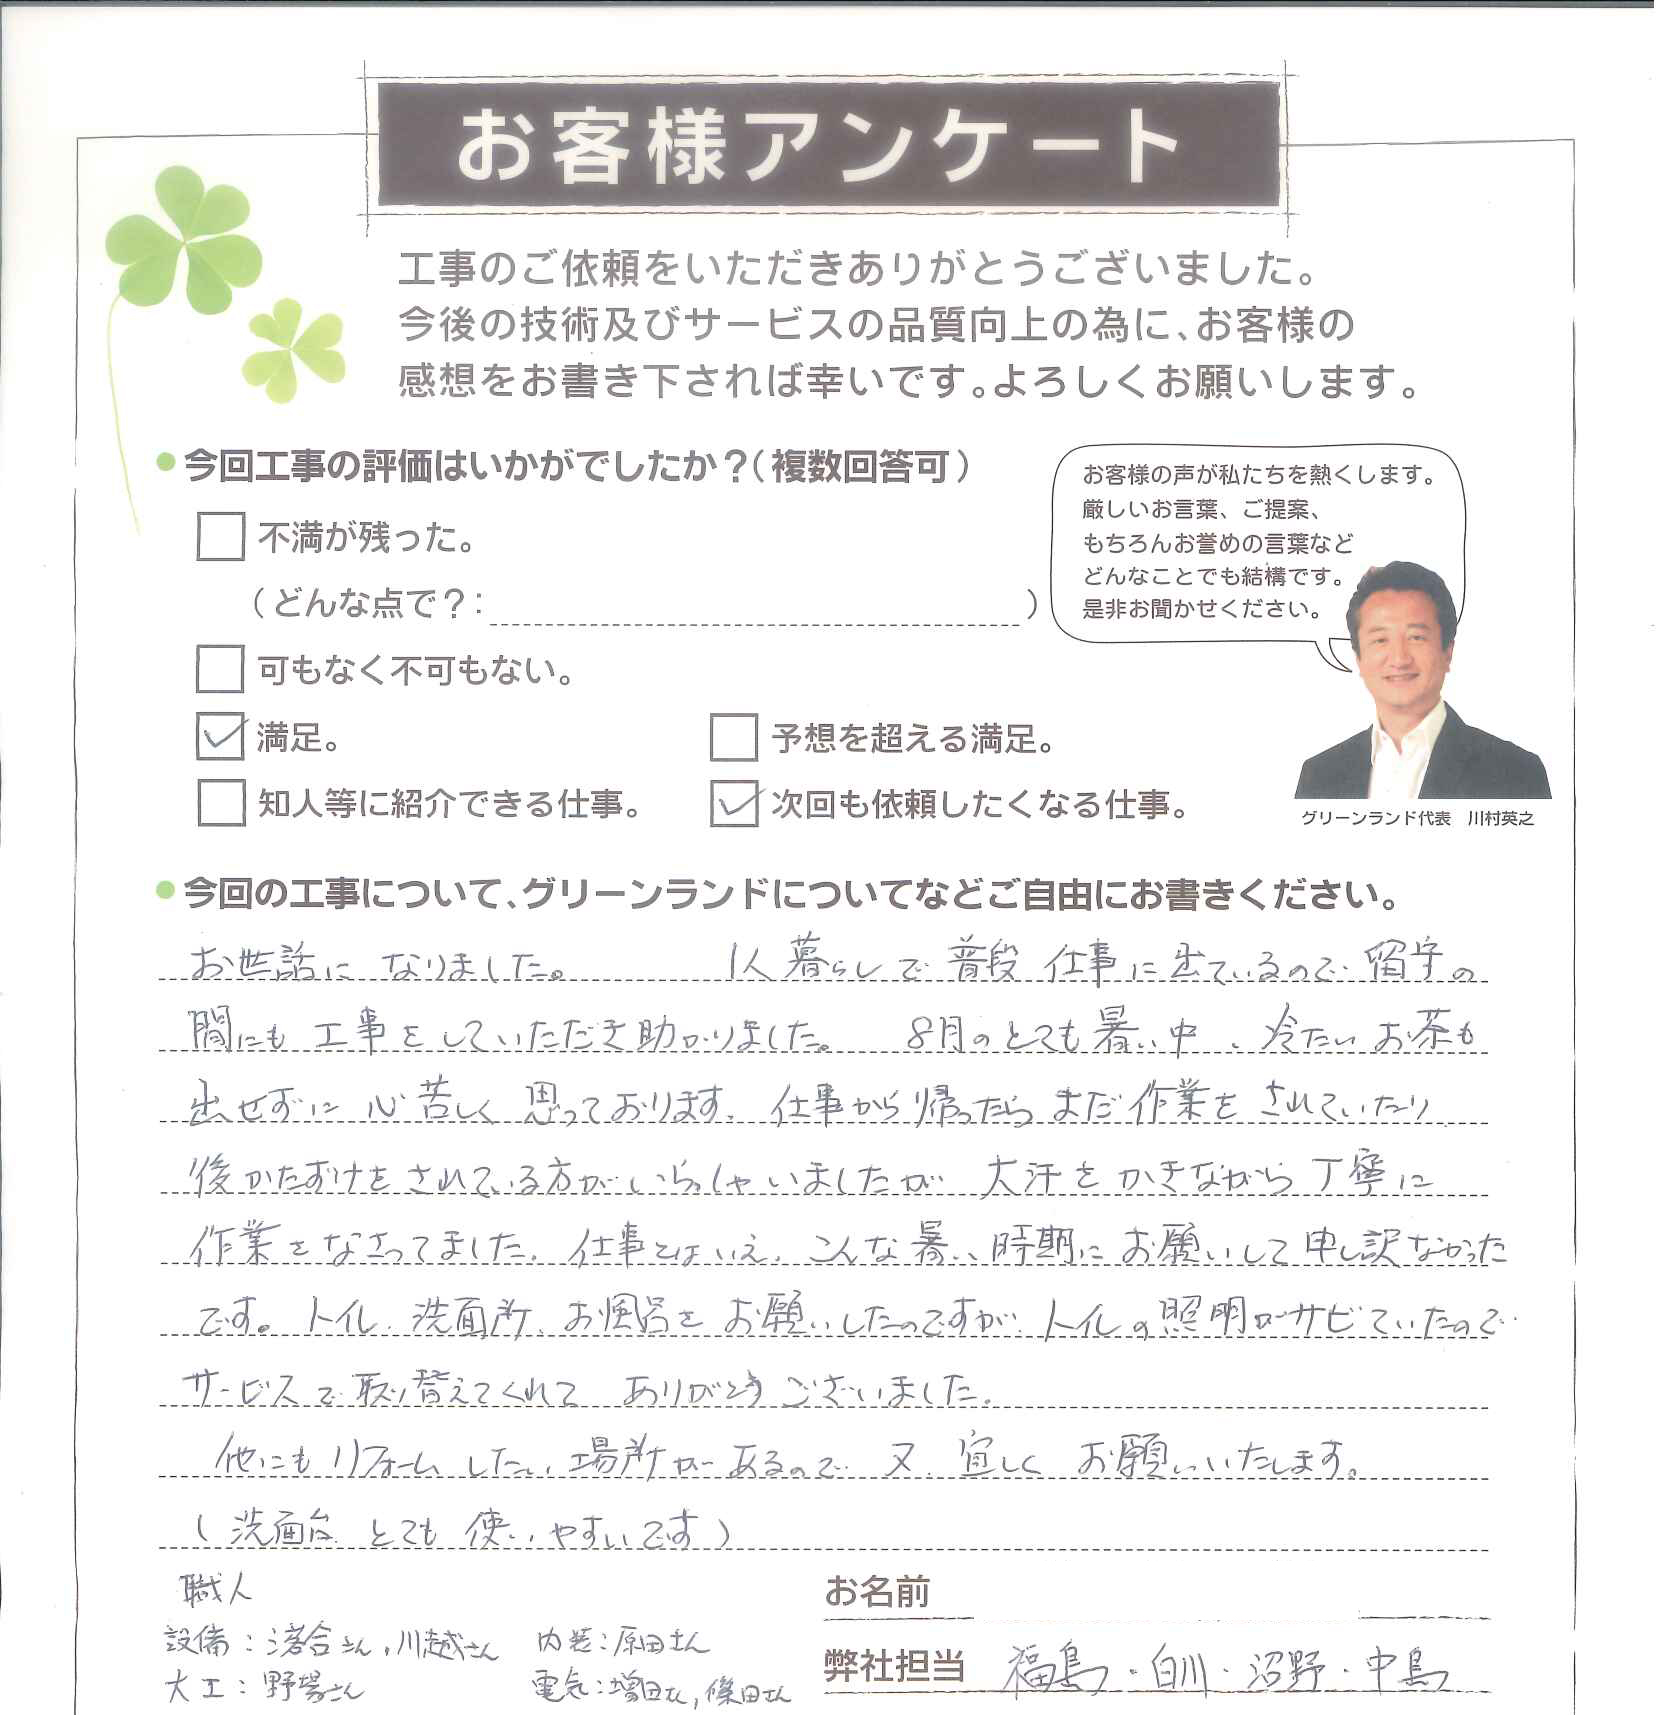 お客様アンケート
工事のご依頼をいただきありがとうございました。
今後の技術及びサービスの品質向上の為に、お客様の
感想をお書き下されば幸いです。よろしくお願いします。
今回工事の評価はいかがでしたか？（複数回答可）
不満が残った。
（どんな点で？： ）
可もなく不可もない。
満足。
予想を超える満足。
知人等に紹介できる仕事。
次回も依頼したくなる仕事。
お客様の声が私たちを熱くします。
厳しいお言葉、ご提案、
もちろんお誉めの言葉など
どんなことでも結構です。
是非お聞かせください。
グリーンランド代表 川村英之
今回の工事について、グリーンランドについてなどご自由にお書きください。
お世話に なりました。 1人暮らしで 普段 仕事に出ているので 留守の
間にも 工事をしていただき助かりました。 8月のとても暑い中、冷たいお茶も
出せずに 心苦しく 思っております。仕事から帰ったら まだ作業をされていたり
後かたずけをされている方が いらっしゃいましたが 大汗をかきながら丁寧に
作業をなさってました。仕事とはいえ、こんな暑い時期に お願いして申し訳なかった
です。トイレ、洗面所、お風呂を お願いしたのですが、トイレの照明がサビていたので
サービスで 取り替えてくれて ありがとうございました。
他にもリフォームしたい場所があるので 又、宜しく お願いいたします。
（洗面台 とても 使いやすいです）
職人
設備：落合さん，川越さん
内装：原田さん
大工：野場さん
電気：増田さん，篠田さん
お名前
弊社担当 福島・白川・沼野・中島